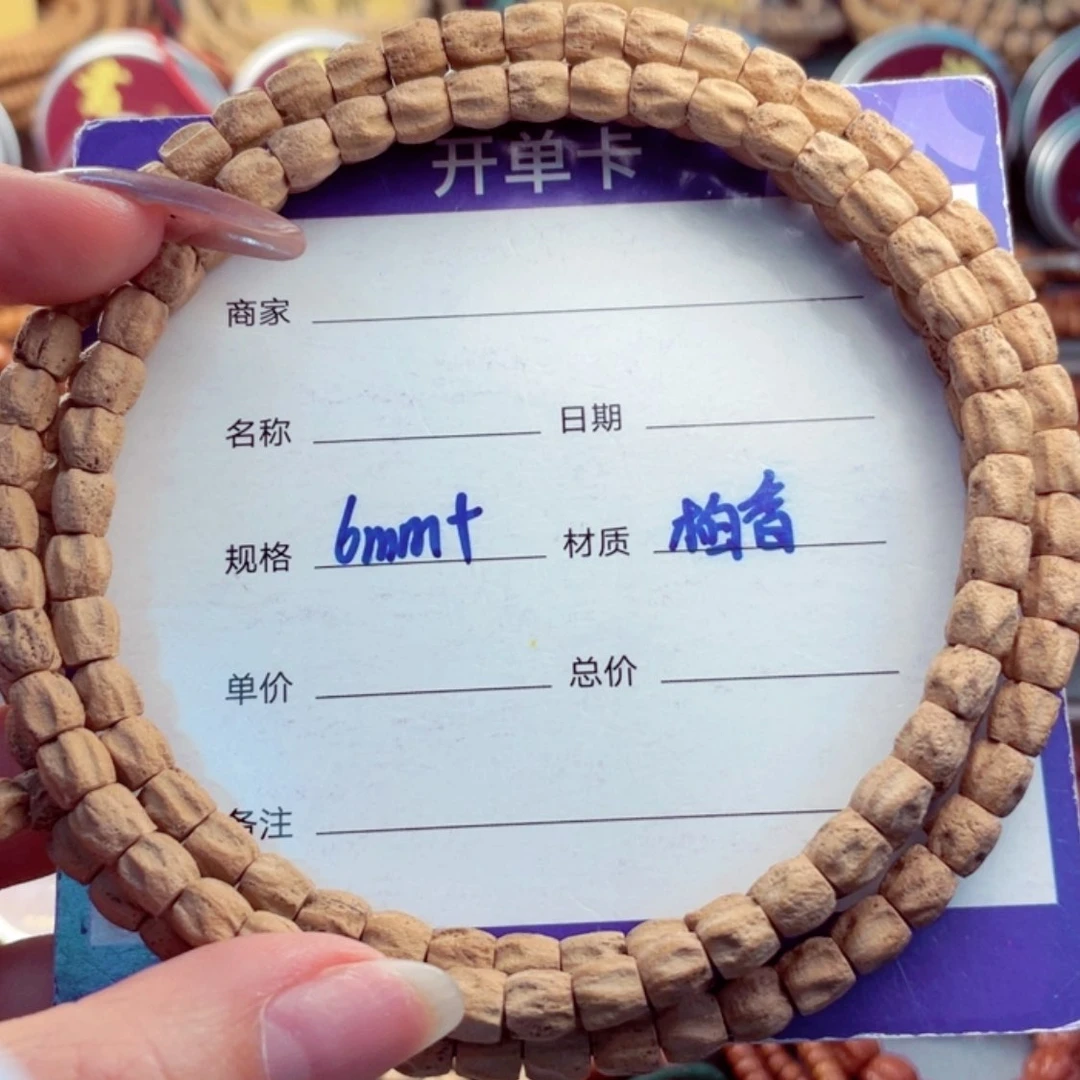 开单卡
商家
名称 日期
规格 6mm+ 材质 柏香
单价 总价
备注